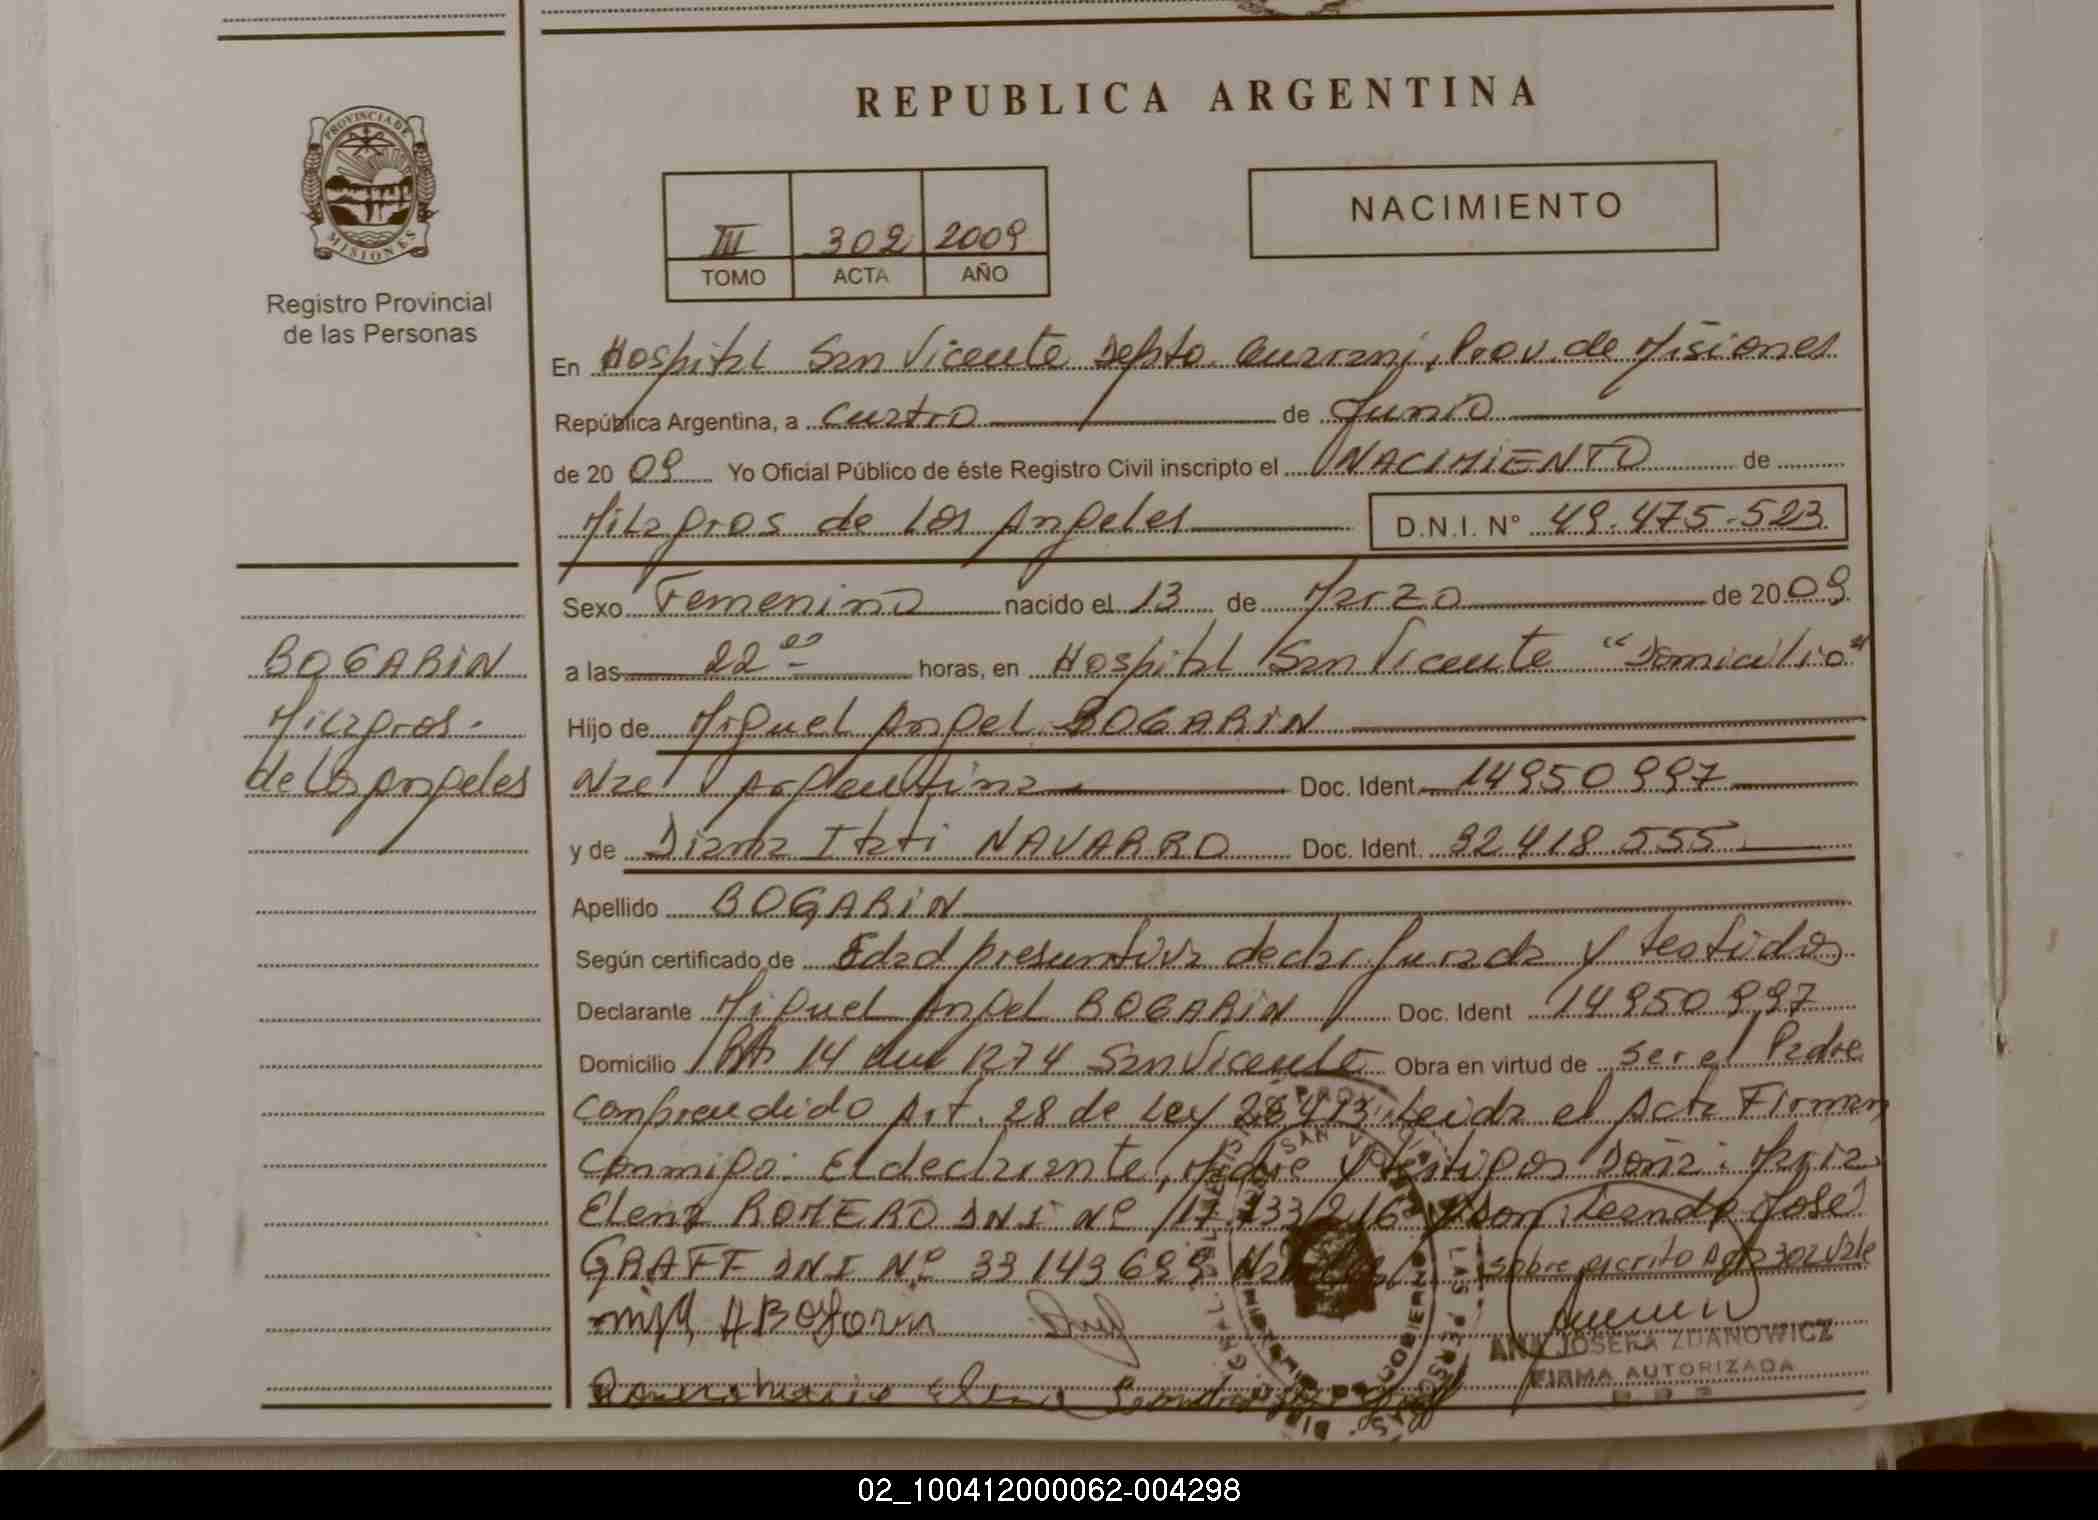 REPUBLICA ARGENTINA
PROVINCIA DE
MISIONES
Registro Provincial
de las Personas
III 302 2009
TOMO ACTA AÑO
NACIMIENTO
En Hospital San Vicente Depto. Guarani, Prov. de Misiones
República Argentina, a cuatro de Junio
de 20 09 Yo Oficial Público de éste Registro Civil inscripto el NACIMIENTO de
Milagros de los Angeles D.N.I. N° 49.475.523
Sexo Femenino nacido el 13 de Marzo de 20 09
a las 22 horas, en Hospital San Vicente "Domicilio"
BOGARIN
Milagros
de los Angeles
Hijo de Miguel Angel BOGARIN
Nac Argentina Doc. Ident. 14950997
y de Diana Itati NAVARRO Doc. Ident. 92418555
Apellido BOGARIN
Según certificado de Edad presuntiva decl. jurada y testidos
Declarante Miguel Angel BOGARIN Doc. Ident 14950997
Domicilio 14 1274 San Vicente Obra en virtud de ser el Padre
Comprendido Art. 28 de Ley 26413 Leida el Acta Firman
conmigo: El declarante, Madre y testigos Doña: Maria
Elena ROMERO DNI Nº 17.733.216 y Don: Leandro José
GRAFF DNI Nº 33143699
sobre escrito Acta 302 vale
ANA JOSEFA ZDANOWICZ
FIRMA AUTORIZADA
Romero Maria Elena
02_100412000062-004298